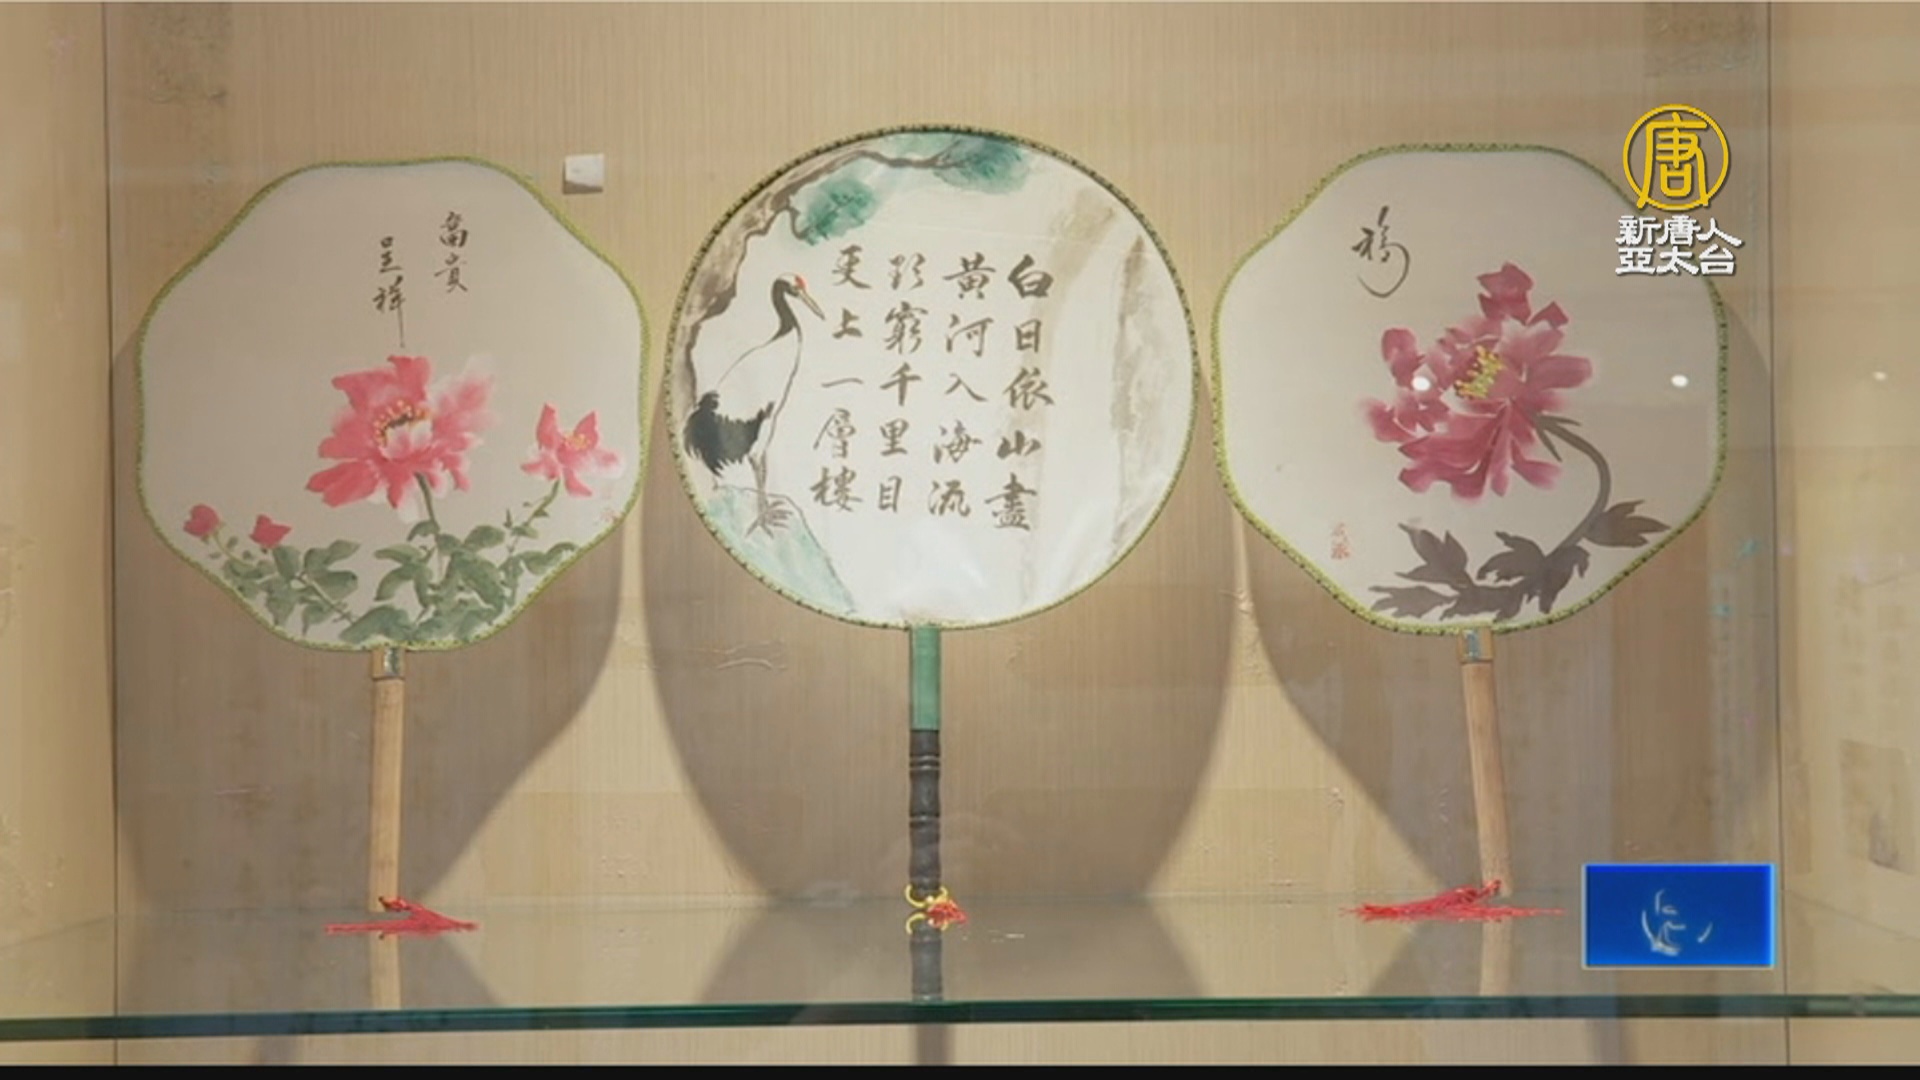 富貴
呈祥
白日依山盡
黃河入海流
欲窮千里目
更上一層樓
福
唐
新唐人
亞太台